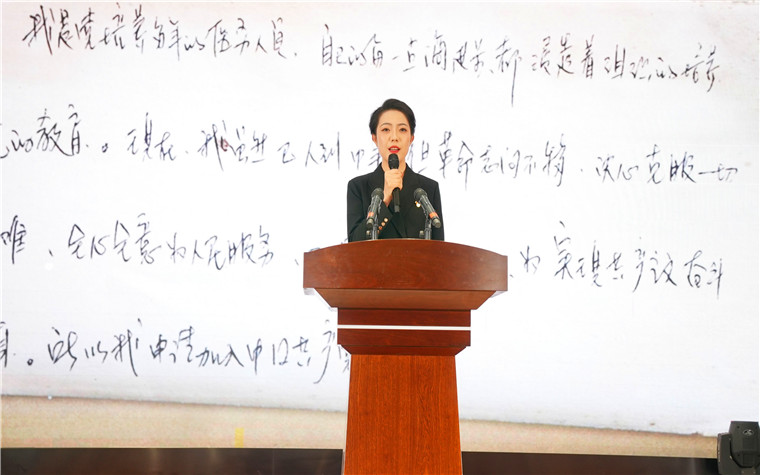 我是党培养多年的医务人员，自己的每一点滴进步都浸透着组织的培养
的教育。现在，我虽然已人到中 但革命志向不移，决心克服一切
难，全心全意为人民服务， 为实现共产主义奋斗
身。所以我申请加入中国共产